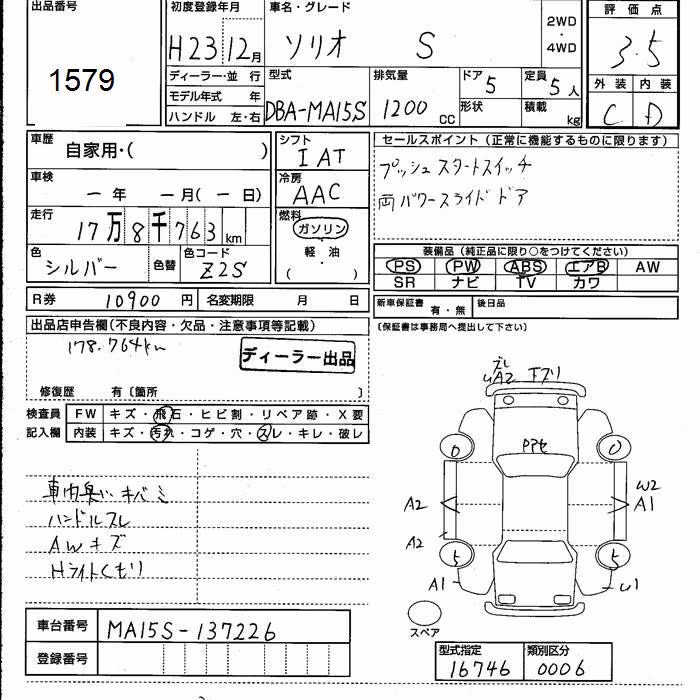 出品番号
1579
初度登録年月
H23 12月
車名・グレード
ソリオ S
2WD
・
4WD
評価点
3.5
外装 内装
C D
ディーラー・並行
モデル年式 年
ハンドル 左・右
型式
DBA-MA15S
排気量
1200 cc
ドア 5
形状
定員 5人
積載 kg
車歴
自家用・( )
車検
一年 一月(一日)
走行
17万8千763km
色
シルバー
色替
色コード
Z2S
シフト
IAT
冷房
AAC
燃料
ガソリン
軽油
( )
セールスポイント(正常に機能するものに限ります)
プッシュスタートスイッチ
両パワースライドドア
装備品(純正品に限り○をつけてください)
PS PW ABS エアB AW
SR ナビ TV カワ
R券 10900円 名変期限 月 日
新車保証書 有・無 後日品
(保証書は事務局へ提出して下さい)
出品店申告欄(不良内容・欠品・注意事項等記載)
178.764km
ディーラー出品
修復歴 有〔箇所 〕
検査員
記入欄
FW キズ・飛石・ヒビ割・リペア跡・X要
内装 キズ・汚れ・コゲ・穴・スレ・キレ・破レ
車内臭い キバミ
ハンドルスレ
AWキズ
Hライトくもり
A2 下ズリ
PPセ
0 0
A2
W2
A1
A2
5 5
A1
U1
スペア
車台番号 MA15S-137226
登録番号
型式指定 類別区分
16746 0006